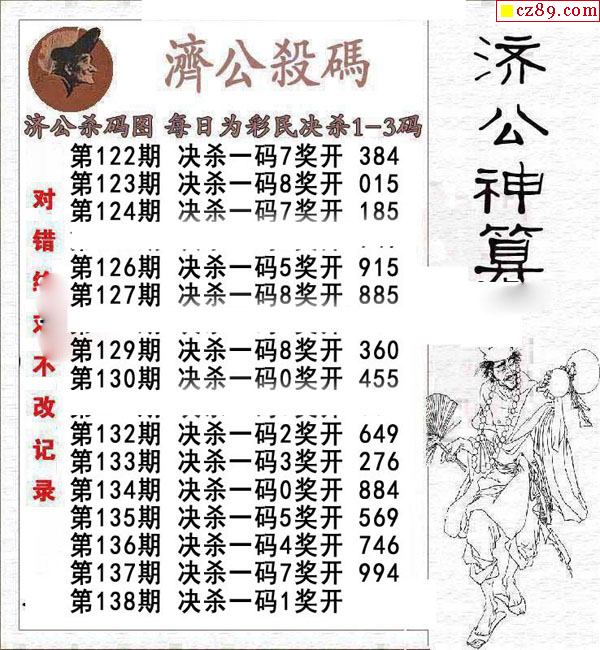 cz89.com
濟公殺碼
济公杀码图 每日为彩民决杀1-3码
第122期 决杀一码7奖开 384
第123期 决杀一码8奖开 015
第124期 决杀一码7奖开 185
第126期 决杀一码5奖开 915
第127期 决杀一码8奖开 885
第129期 决杀一码8奖开 360
第130期 决杀一码0奖开 455
第132期 决杀一码2奖开 649
第133期 决杀一码3奖开 276
第134期 决杀一码0奖开 884
第135期 决杀一码5奖开 569
第136期 决杀一码4奖开 746
第137期 决杀一码7奖开 994
第138期 决杀一码1奖开
对错不改记录
济公神算